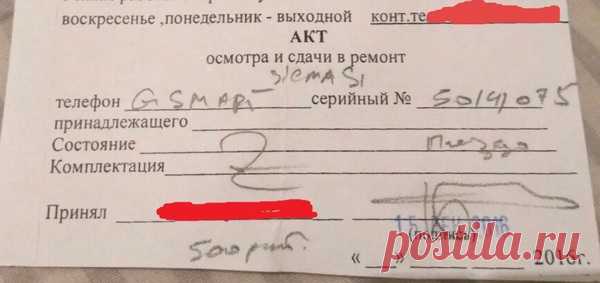 воскресенье ,понедельник - выходной конт.те
АКТ
осмотра и сдачи в ремонт
SIGMA S1
телефон GSMART серийный № 50141075
принадлежащего
Состояние гнездо
Комплектация
Принял
15 2016
(подпись)
500 руб.
« » 2016г.
postila.ru